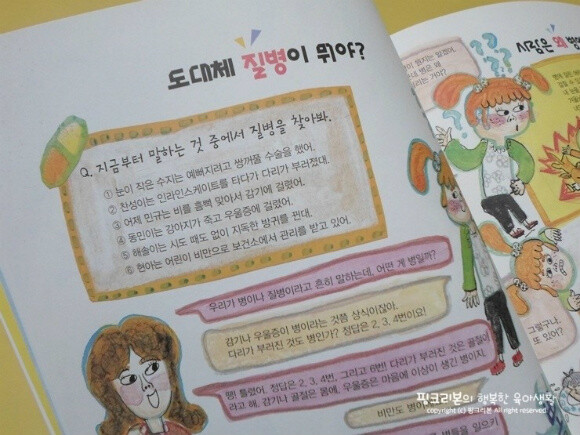 도대체 질병이 뭐야?
Q. 지금부터 말하는 것 중에서 질병을 찾아봐.
① 눈이 작은 수지는 예뻐지려고 쌍꺼풀 수술을 했어.
② 찬성이는 인라인스케이트를 타다가 다리가 부러졌대.
③ 어제 민규는 비를 흠뻑 맞아서 감기에 걸렸어.
④ 동민이는 강아지가 죽고 우울증에 걸렸어.
⑤ 해솔이는 시도 때도 없이 지독한 방귀를 뀐대.
⑥ 현아는 어린이 비만으로 보건소에서 관리를 받고 있어.
우리가 병이나 질병이라고 흔히 말하는데, 어떤 게 병일까?
감기나 우울증이 병이라는 것쯤 상식이잖아.
다리가 부러진 것도 병인가? 정답은 2, 3, 4번이요!
땡! 틀렸어. 정답은 2, 3, 4번, 그리고 6번! 다리가 부러진 것은 골절이
라고 해. 감기나 골절은 몸에, 우울증은 마음에 이상이 생긴 병이지.
비만도 병이
병들을 일으키
사람은 왜
그렇구나.
또 있어?
핑크리본의 행복한 육아생활
copyright (c) 핑크리본 All right reserved.